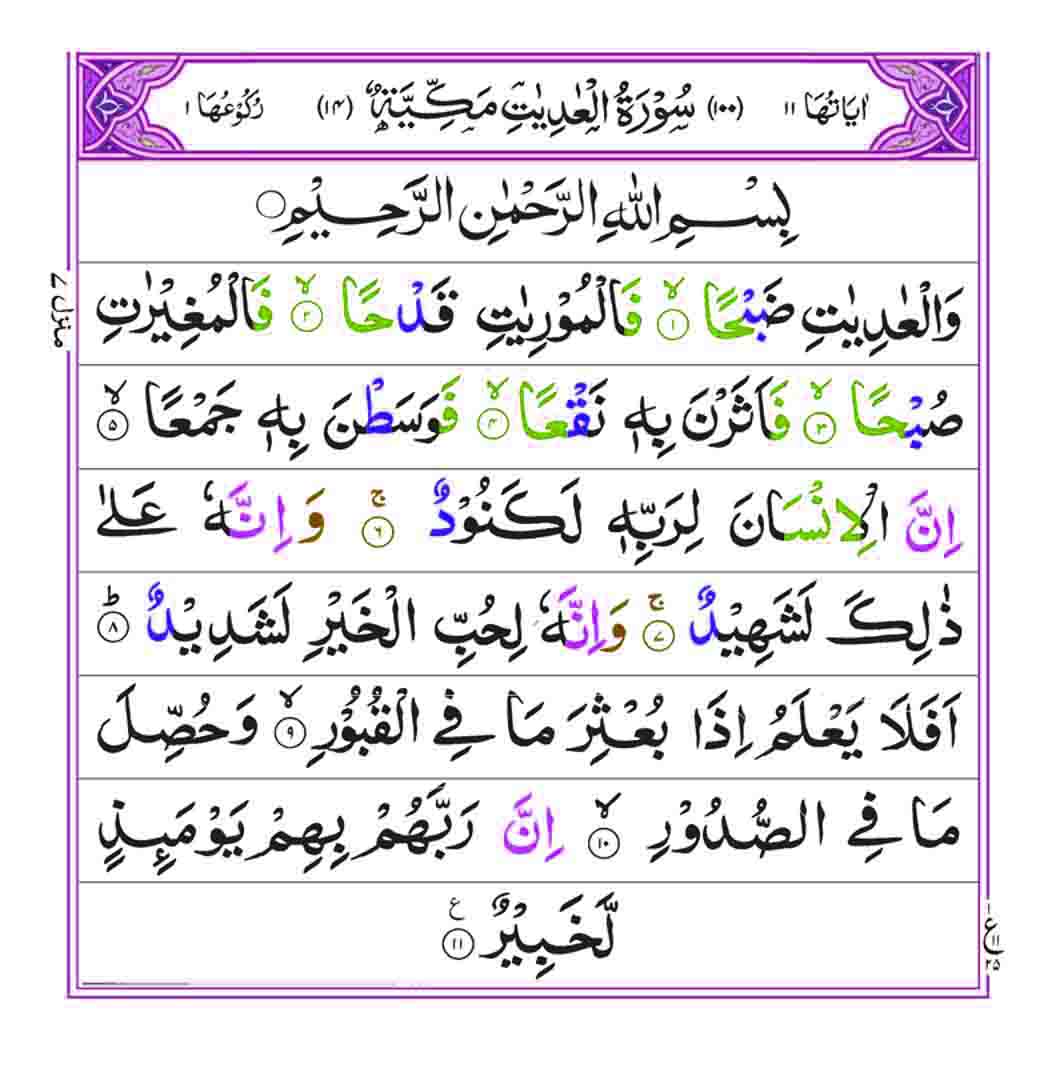 اٰیَاتُهَا ١١ (١٠٠) سُوْرَةُ الْعٰدِیٰتِ مَكِّیَّةٌ (١٤) رُكُوْعُهَا ١
بِسْمِ اللّٰهِ الرَّحْمٰنِ الرَّحِیْمِ
وَالْعٰدِیٰتِ ضَبْحًا ۙ﴿١﴾ فَالْمُوْرِیٰتِ قَدْحًا ۙ﴿٢﴾ فَالْمُغِیْرٰتِ
صُبْحًا ۙ﴿٣﴾ فَاَثَرْنَ بِهٖ نَقْعًا ۙ﴿٤﴾ فَوَسَطْنَ بِهٖ جَمْعًا ۙ﴿٥﴾
اِنَّ الْاِنْسَانَ لِرَبِّهٖ لَكَنُوْدٌ ۚ﴿٦﴾ وَ اِنَّهٗ عَلٰی
ذٰلِكَ لَشَهِیْدٌ ۚ﴿٧﴾ وَاِنَّهٗ لِحُبِّ الْخَیْرِ لَشَدِیْدٌ ؕ﴿٨﴾
اَفَلَا یَعْلَمُ اِذَا بُعْثِرَ مَا فِی الْقُبُوْرِ ۙ﴿٩﴾ وَحُصِّلَ
مَا فِی الصُّدُوْرِ ۙ﴿١٠﴾ اِنَّ رَبَّهُمْ بِهِمْ یَوْمَىِٕذٍ
لَّخَبِیْرٌ ﴿١١﴾ ع
منزل ٧
١
ع ١١
٢٥